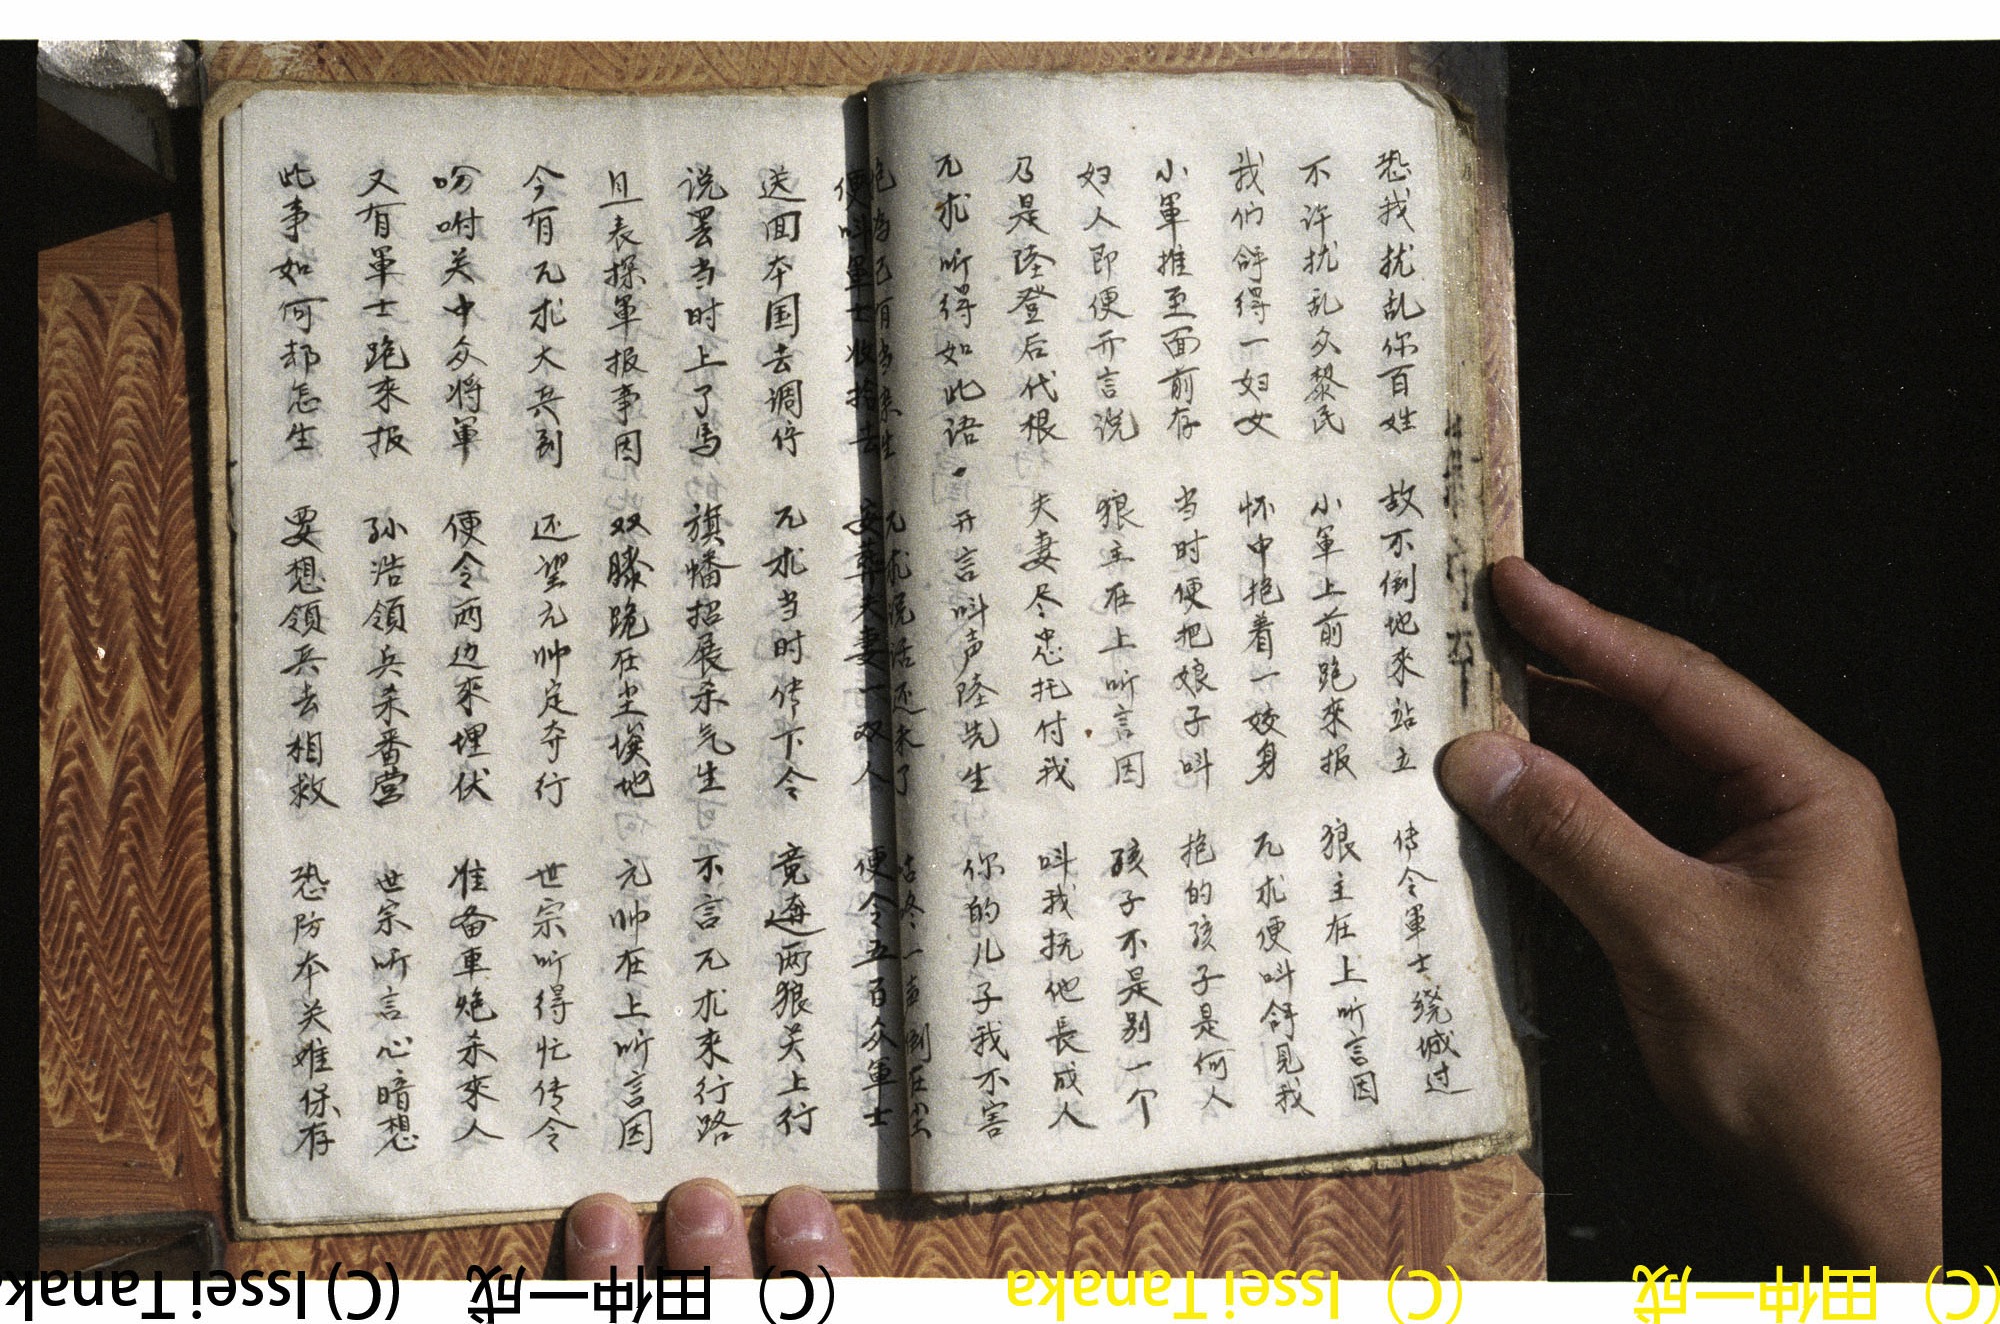 恐我扰乱你百姓 故不倒地來站立 传令軍士绕城过
不许扰乱众黎民 小軍上前跑來报 狼主在上听言因
我们拿得一妇女 怀中抱着一姣身 兀朮便叫拿見我
小軍推至面前存 当时便把娘子叫 抱的孩子是何人
妇人即便开言说 狼主在上听言因 孩子不是别一个
乃是陸登后代根 夫妻尽忠托付我 叫我抚他長成人
兀朮听得如此语 开言叫声陸先生 你的儿子我不害
抱为己有当亲生 兀朮说话还未了 咕咚一声倒在尘
便叫軍士收拾去 安葬夫妻一双人 便令五百众軍士
送回本国去调停 兀朮当时传下令 竟两狼关上行
说罢当时上了馬 旗幡招展杀气生 不言兀朮來行路
且表探軍报事因 双膝跪在尘埃地 元帅在上听言因
今有兀朮大兵到 还望元帅定夺行 世宗听得忙传令
吩咐关中众将軍 便令两边來埋伏 准备車炮杀來人
又有軍士跑來报 孙浩領兵杀番营 世宗听言心暗想
此事如何却怎生 要想領兵去相救 恐防本关难保存
(C) 田仲一成
(C) Issei Tanaka
(C) 田仲一成
(C) Issei Tanak